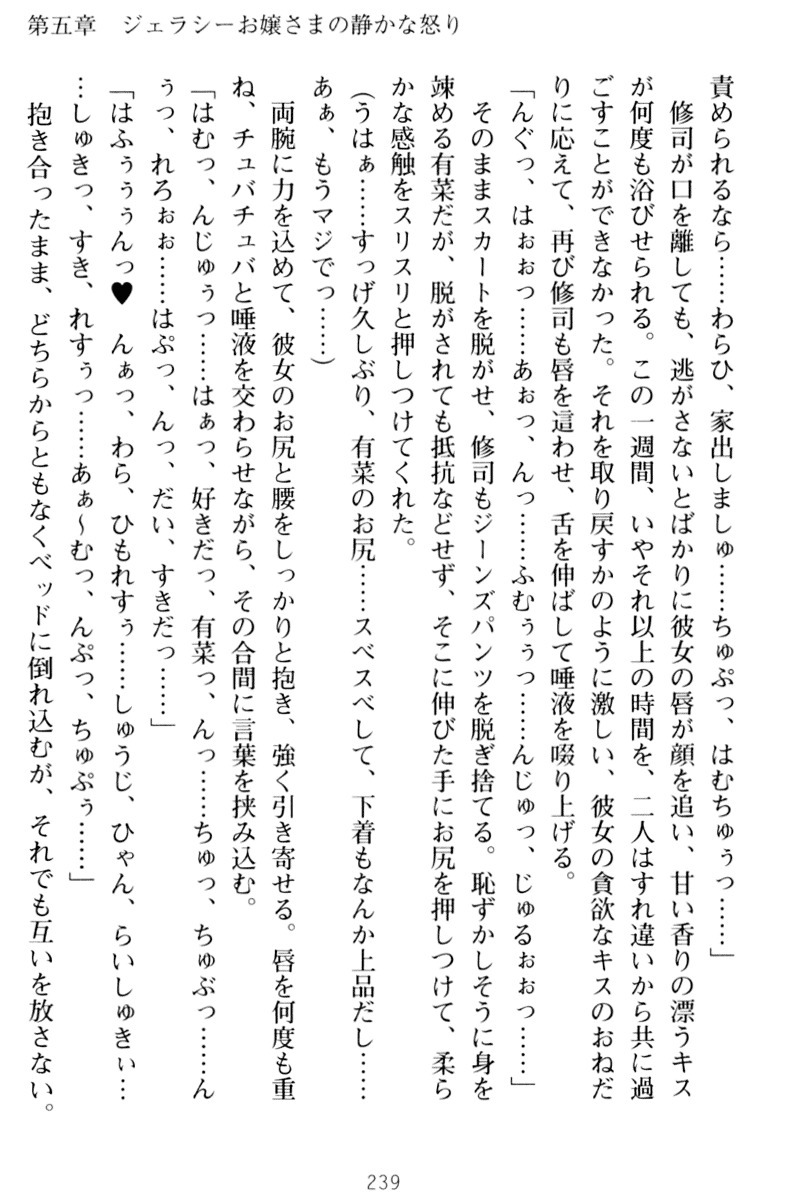 第五章　ジェラシーお嬢さまの静かな怒り
責められるなら……わらひ、家出しましゅ……ちゅぷっ、はむちゅぅっ……」
　修司が口を離しても、逃がさないとばかりに彼女の唇が顔を追い、甘い香りの漂うキス
が何度も浴びせられる。この一週間、いやそれ以上の時間を、二人はすれ違いから共に過
ごすことができなかった。それを取り戻すかのように激しい、彼女の貪欲なキスのおねだ
りに応えて、再び修司も唇を這わせ、舌を伸ばして唾液を啜り上げる。
「んぐっ、はぉぉっ……あぉっ、んっ……ふむぅぅっ……んじゅっ、じゅるぉぉっ……」
　そのままスカートを脱がせ、修司もジーンズパンツを脱ぎ捨てる。恥ずかしそうに身を
竦める有菜だが、脱がされても抵抗などせず、そこに伸びた手にお尻を押しつけて、柔ら
かな感触をスリスリと押しつけてくれた。
（うはぁ……すっげ久しぶり、有菜のお尻……スベスベして、下着もなんか上品だし……
あぁ、もうマジでっ……）
　両腕に力を込めて、彼女のお尻と腰をしっかりと抱き、強く引き寄せる。唇を何度も重
ね、チュバチュバと唾液を交わらせながら、その合間に言葉を挟み込む。
「はむっ、んじゅぅっ……はぁっ、好きだっ、有菜っ、んっ……ちゅっ、ちゅぶっ……ん
ぅっ、れろぉぉ……はぷっ、んっ、だい、すきだっ……」
「はふぅぅぅんっ♥　んぁっ、わら、ひもれすぅ……しゅうじ、ひゃん、らいしゅきぃ…
…しゅきっ、すき、れすぅっ……あぁ～むっ、んぷっ、ちゅぷぅ……」
　抱き合ったまま、どちらからともなくベッドに倒れ込むが、それでも互いを放さない。
239